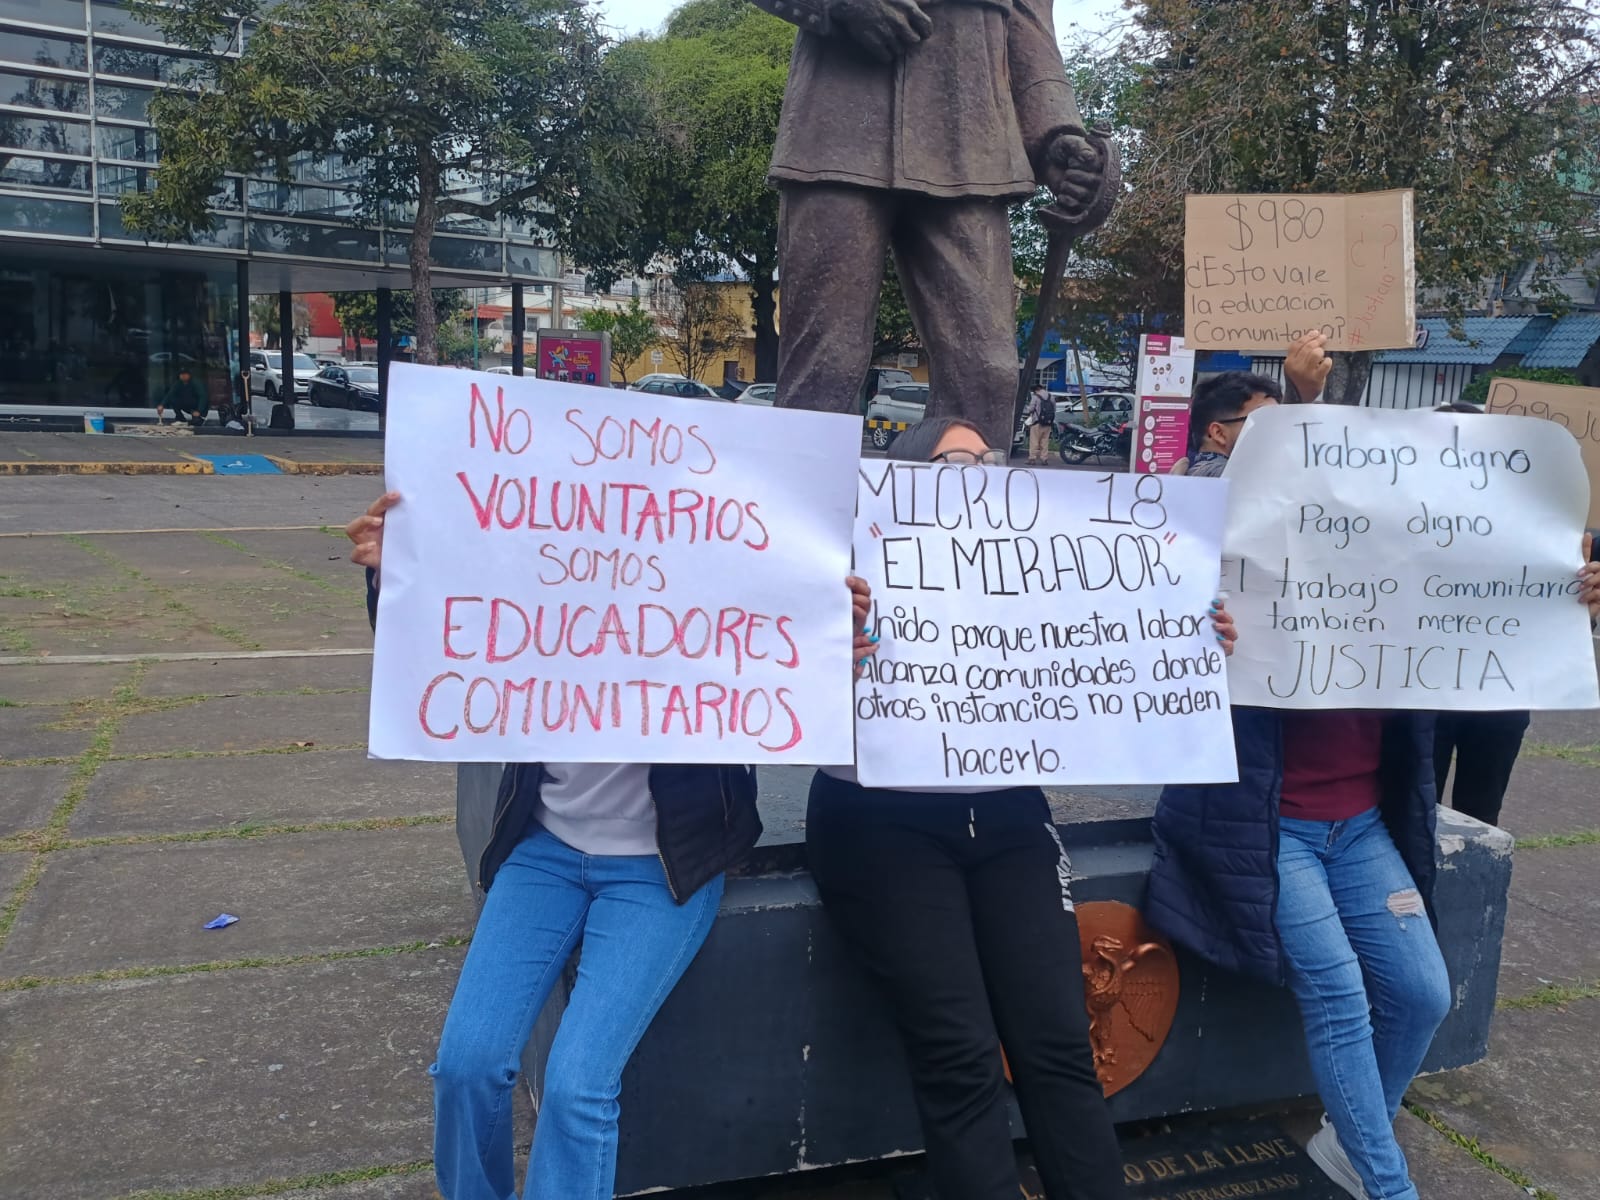 No somos
VOLUNTARIOS
somos
EDUCADORES
COMUNITARIOS
MICRO 18
"EL MIRADOR"
Unido porque nuestra labor
alcanza comunidades donde
otras instancias no pueden
hacerlo.
$980
¿Esto vale
la educación
Comunitaria?
#Justicia
¿ ?
Trabajo digno
Pago digno
El trabajo Comunitario
también merece
JUSTICIA
Pago Ju
DE LA LLAVE
VERACRUZANO